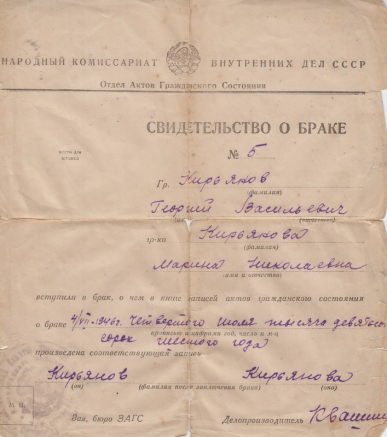 НАРОДНЫЙ КОМИССАРИАТ ВНУТРЕННИХ ДЕЛ СССР
Отдел Актов Гражданского Состояния
СВИДЕТЕЛЬСТВО О БРАКЕ
№ 5
Гр. Кирьянов
(фамилия)
Георгий Васильевич
гр-ка Кирьянова
(фамилия)
Марина Николаевна
имя и отчество
вступили в брак, о чем в книге записей актов гражданского состояния
о браке 4/VII-1946г. Четвертого июля тысяча девятьсот
сорок шестого года
произведена соответствующая запись
Кирьянов Кирьянова
(он) (фамилия после заключения брака) (она)
М. П.
Зав. бюро ЗАГС Делопроизводитель